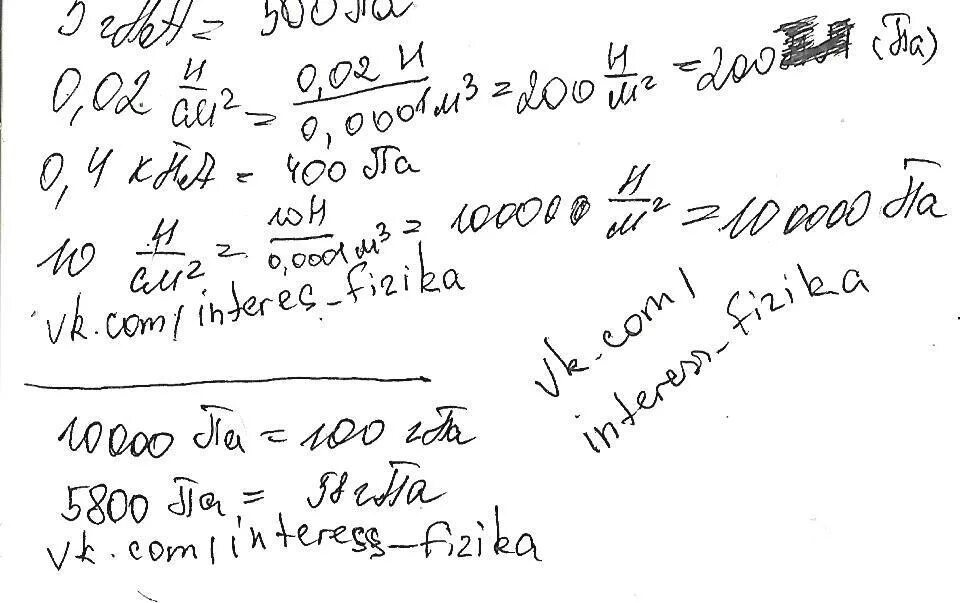 5 гПа = 500 Па
0,02 Н/см² = 0,02 Н/0,0001 м³ = 200 Н/м² = 200 (Па)
0,4 кПа = 400 Па
10 Н/см² = 10 Н/0,0001 м³ = 100000 Н/м² = 100000 Па
vk.com/interes_fizika
vk.com/
interess_fizika
10000 Па = 100 гПа
5800 Па = 58 гПа
vk.com/interess_fizika